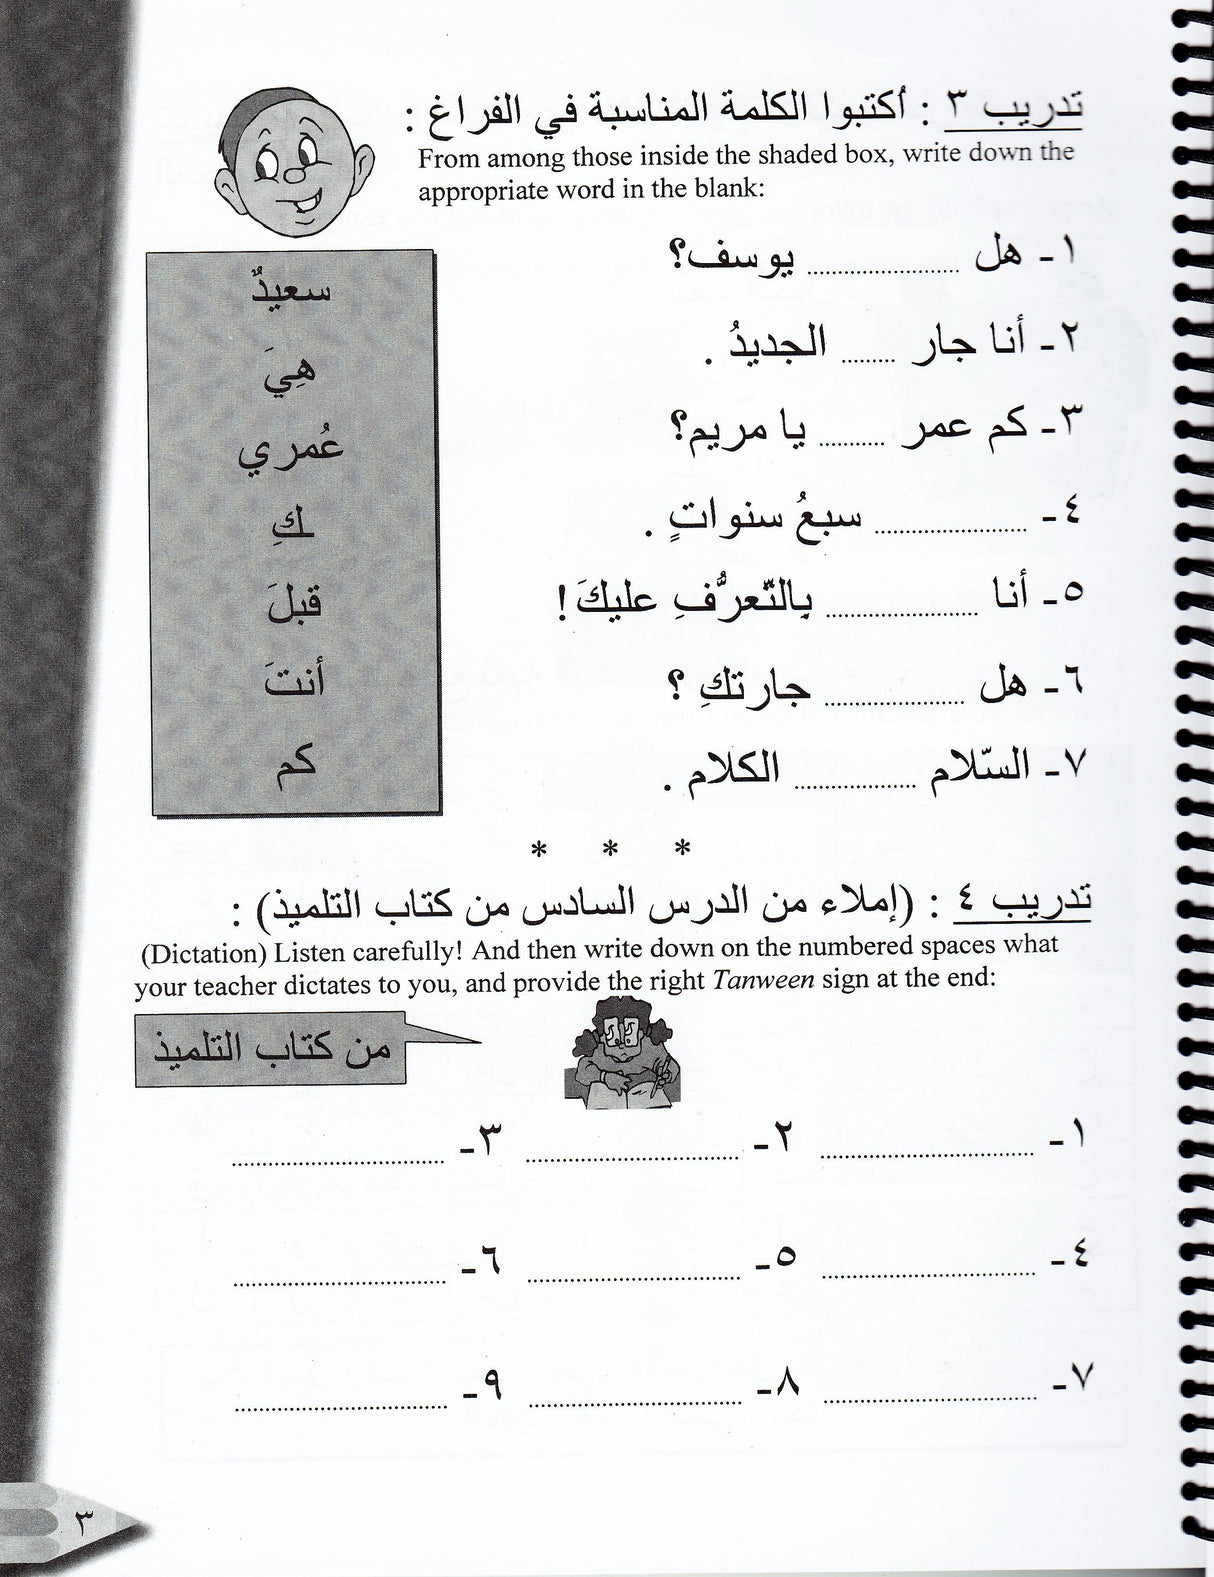 تدريب ٣ : أكتبوا الكلمة المناسبة في الفراغ :
From among those inside the shaded box, write down the
appropriate word in the blank:
١- هل ........................ يوسف؟
٢- أنا جار ........ الجديدُ .
٣- كم عمر .......... يا مريم؟
٤- ........................ سبعُ سنواتٍ .
٥- أنا ........................ بِالتّعرُّفِ عليكَ !
٦- هل ...................... جارتكِ ؟
٧- السّلام ................... الكلام .
سعيدٌ
هِيَ
عُمري
ـكِ
قبلَ
أنتَ
كم
* * *
تدريب ٤ : (إملاء من الدرس السادس من كتاب التلميذ) :
(Dictation) Listen carefully! And then write down on the numbered spaces what
your teacher dictates to you, and provide the right Tanween sign at the end:
من كتاب التلميذ
١- .................................. ٢- .................................. ٣- ..................................
٤- .................................. ٥- .................................. ٦- ..................................
٧- .................................. ٨- .................................. ٩- ..................................
٣